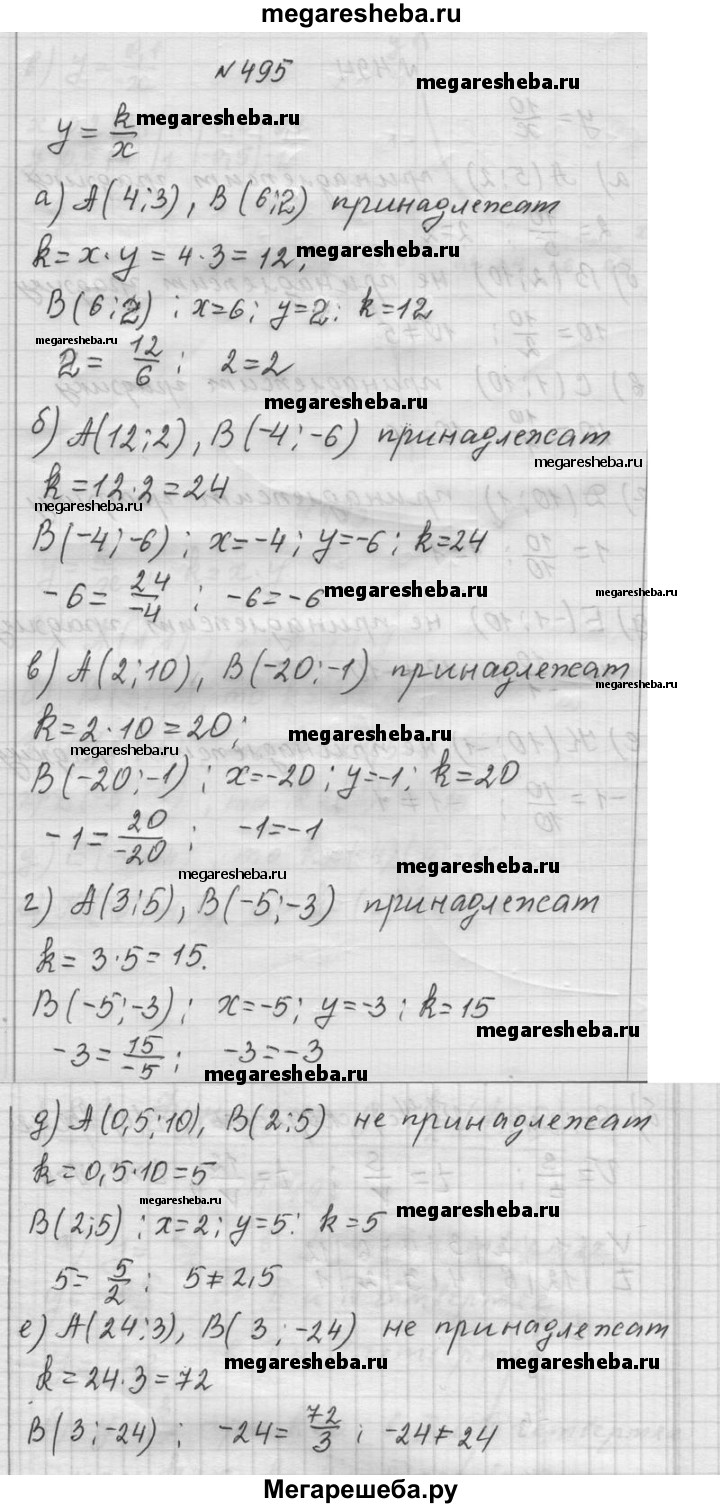 megaresheba.ru
№ 495
megaresheba.ru
y = k/x megaresheba.ru
а) A(4;3), B(6;2) принадлежат
k = x·y = 4·3 = 12; megaresheba.ru
B(6;2) ; x=6; y=2; k=12
megaresheba.ru
2 = 12/6 ; 2=2
megaresheba.ru
б) A(12;2), B(-4;-6) принадлежат
megaresheba.ru
k=12·2=24
megaresheba.ru
B(-4;-6) ; x=-4; y=-6; k=24
-6 = 24/-4 ; -6=-6 megaresheba.ru megaresheba.ru
в) A(2;10), B(-20;-1) принадлежат
megaresheba.ru
k=2·10=20; megaresheba.ru
megaresheba.ru
B(-20;-1) ; x=-20; y=-1; k=20
-1 = 20/-20 ; -1=-1
megaresheba.ru megaresheba.ru
г) A(3;5), B(-5;-3) принадлежат
k= 3·5=15.
B(-5;-3); x=-5; y=-3; k=15
megaresheba.ru
-3 = 15/-5 ; -3=-3
megaresheba.ru
д) A(0,5;10), B(2;5) не принадлежат
k=0,5·10=5
megaresheba.ru
B(2;5) ; x=2; y=5; k=5 megaresheba.ru
5 = 5/2 ; 5≠2,5
е) A(24;3), B(3;-24) не принадлежат
megaresheba.ru megaresheba.ru
k=24·3=72
B(3;-24) ; -24 = 72/3 ; -24≠24
Мегарешеба.ру